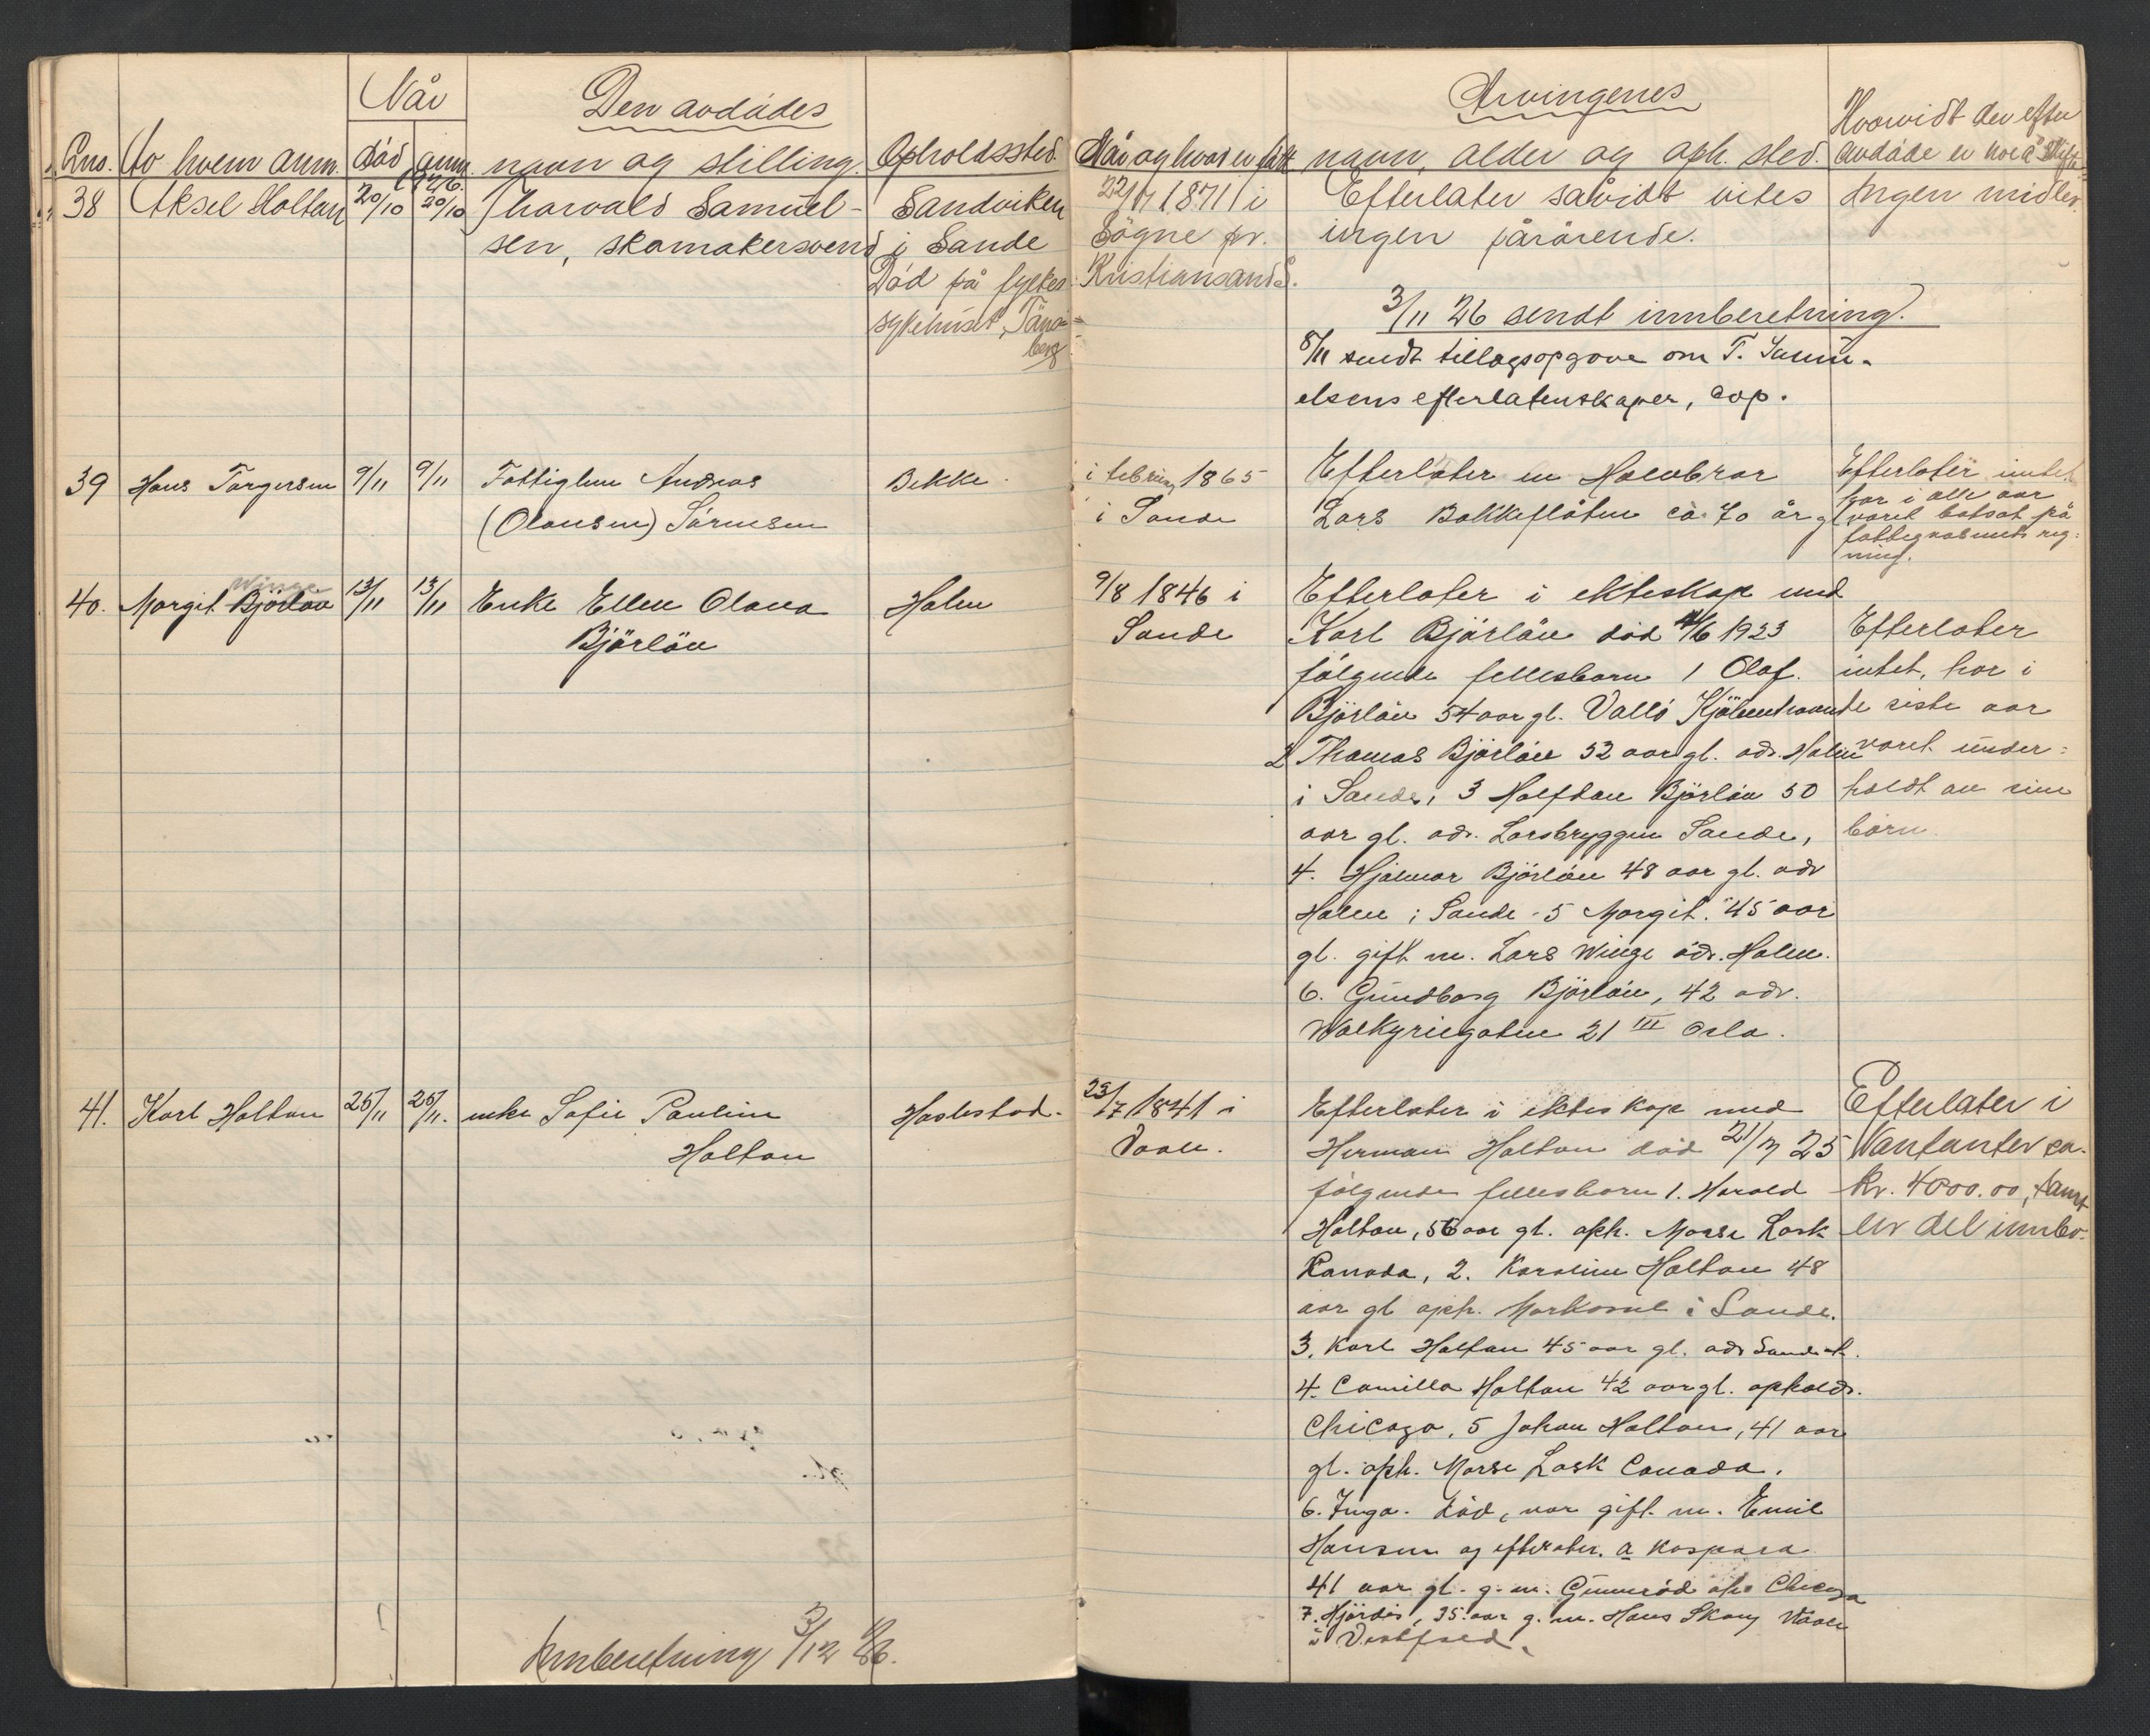 Når
Den avdødes
Lno. Av hvem anm. død anm. navn og stilling. Opholdssted.
1926.
38 Aksel Holtan 20/10 20/10 Thorvald Samuel- Sandviken
sen, skomakersvend i Sande
Død på fylkes
sykehuset, Tøns-
berg
39 Hans Torgersen 9/11 9/11 Fattiglem Andreas Bekke
(Olausen) Sörensen
Winge
40. Margit Björløv 13/11 13/11 Enke Ellen Olava Holm
Björløv
41. Karl Holtan 25/11 25/11. enke Sofie Pauline Haslestad.
Holtan
Innberetning 3/12 26.
Arvingenes
Hvorvidt der efter
Når og hvor er født navn, alder og oph. sted. avdøde er noe å skifte
22/11 1871 i Efterlater såvidt vites Ingen midler.
Søgne pr. ingen pårørende.
Kristiansand S.
3/11 26 sendt innberetning.
8/11 sendt tillægsopgave om T. Samu-
elsens efterlatenskaper, cop.
i februar 1865 Efterlater en Halvbror Efterlater intet.
i Sande Lars Bakkefløten ca 70 år gl har i alle aar
været bortsat på
fattigvæsenets reg:
ning.
9/8 1846 i Efterlater i ekteskap med
Sande Karl Björløv død 4/6 1923 Efterlater
følgende fellesbarn 1 Olaf. intet, har i
Björløv 54 aar gl. Vallö de siste aar
2 Thomas Björløv 52 aar gl. adr. Holm været under:
i Sande, 3 Halfdan Björløv 50 holdt av sine
aar gl. adr. Larsbryggen Sande, børn
4. Hjalmar Björløv 48 aar gl. adr
Holm i Sande - 5 Margit. 45 aar
gl. gift m. Lars Winge adr. Holm.
6. Gundborg Björløv, 42 adr.
Walkyriegaten 21 III Oslo.
23/7 1841 i Efterlater i ekteskap med Efterlater i
Vaale. Herman Holtan død 21/7 25 Kontanter ca.
følgende fellesbarn 1. Harald kr. 4000.00, samt
Holtan, 56 aar gl. oph. Morse Lask en del innbo.
Kanada, 2. Karoline Holtan 48
aar gl oph. i Sande.
3. Karl Holtan 45 aar gl. adr
4. Camilla Holtan 42 aar gl. opholds.
Chicago, 5 Johan Holtan, 41 aar
gl. oph. Morse Lask Canada.
6. Inga. död, var gift m. Emil
Hansen og efterater. a Kaspara
41 aar gl. g. m. Gunneröd oph Chicago
7. Hjördis, 35. aar g. m. Hans Skaug Vaale
i Vestfold.